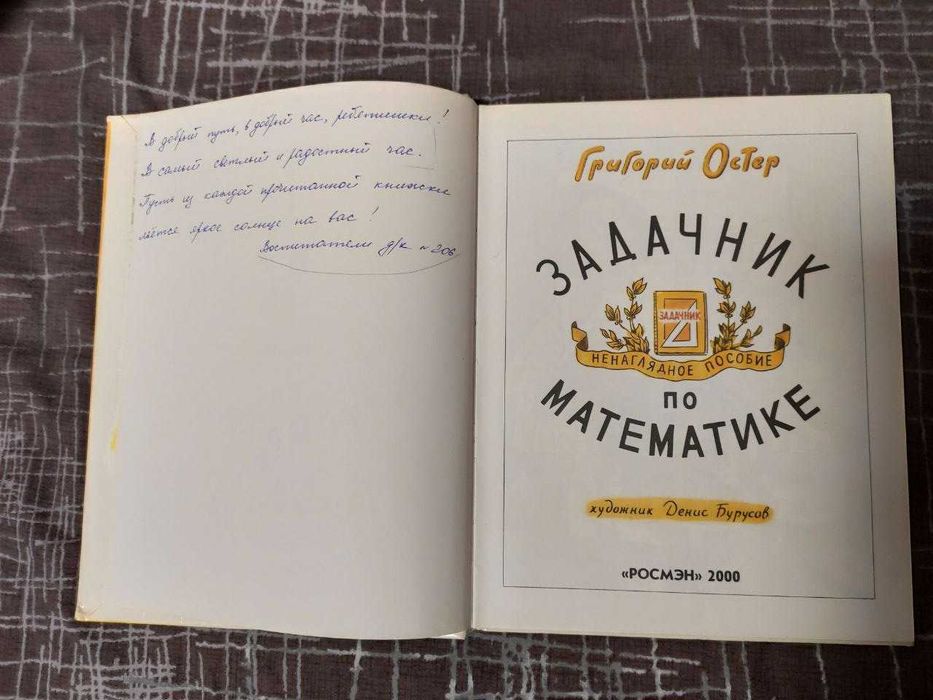 В добрый путь, в добрый час, ребятишки!
В самый светлый и радостный час.
Пусть из каждой прочитанной книжки
льётся яркое солнце на вас!
Воспитатели д/к ~ 206
Григорий Остер
ЗАДАЧНИК
ЗАДАЧНИК
НЕНАГЛЯДНОЕ ПОСОБИЕ
ПО
МАТЕМАТИКЕ
художник Денис Бурусов
«РОСМЭН» 2000